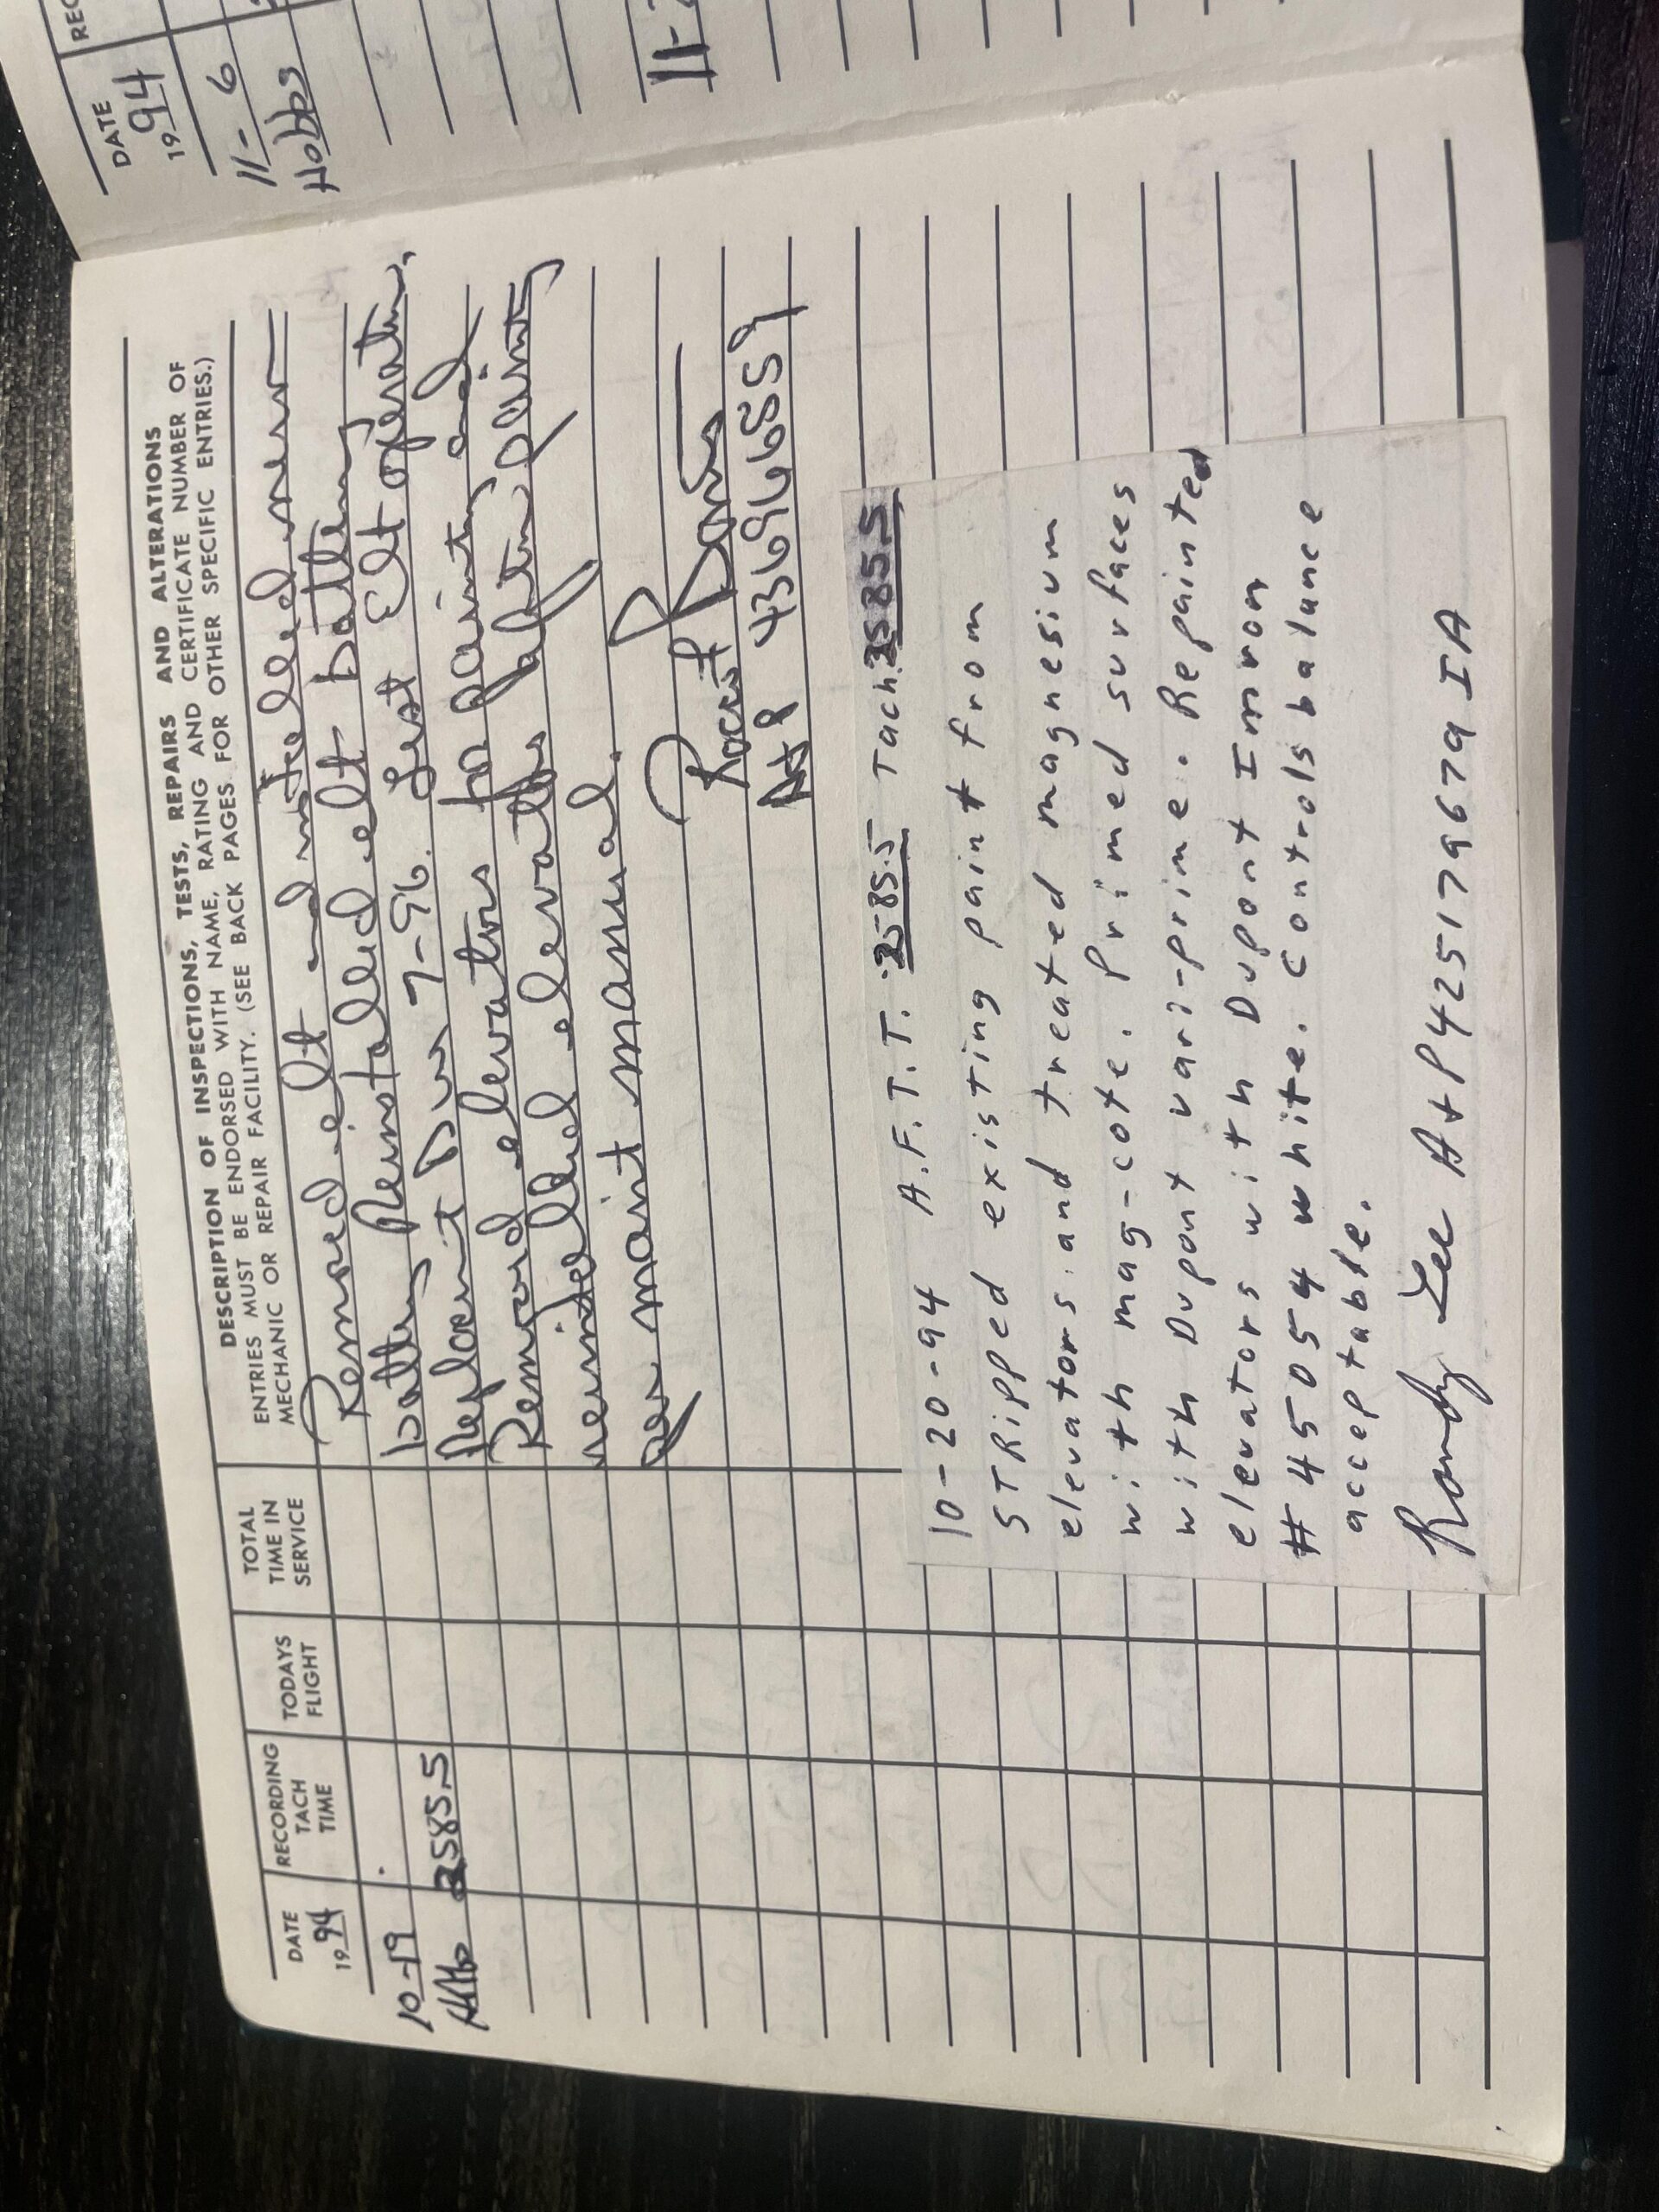 DESCRIPTION OF INSPECTIONS, TESTS, REPAIRS AND ALTERATIONS
ENTRIES MUST BE ENDORSED WITH NAME, RATING AND CERTIFICATE NUMBER OF
MECHANIC OR REPAIR FACILITY. (SEE BACK PAGES FOR OTHER SPECIFIC ENTRIES.)
DATE
19 94
RECORDING
TACH
TIME
TODAYS
FLIGHT
TOTAL
TIME IN
SERVICE
10-19
Hobbs 2585.5
Removed elt and installed new
battery Reinstalled elt battery
Replacemt Due 7-96. Test Elt operation.
Removed elevators for paint and
reinstalled elevators
per maint manual.
A&P 436969689
10-20-94 A.F.T.T. 2585.5 Tach 2585.5
STRIPPED existing paint from
elevators and treated magnesium
with mag-cote. Primed surfaces
with Dupont vari-prime. Repainted
elevators with Dupont Imron
#45054 white. Controls balance
acceptable.
Randy Lee A+P 425179679 IA
DATE
19 94
REC
11-6
Hobbs
11-2